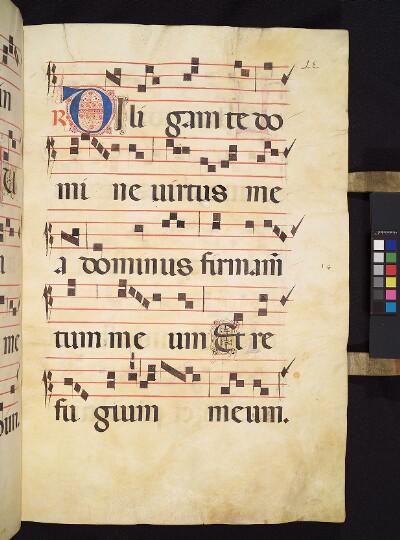 R Dili gam te do
mi ne uirtus me
a dominus firmam̄
tum me um Et re
fu gium meum.
in
me